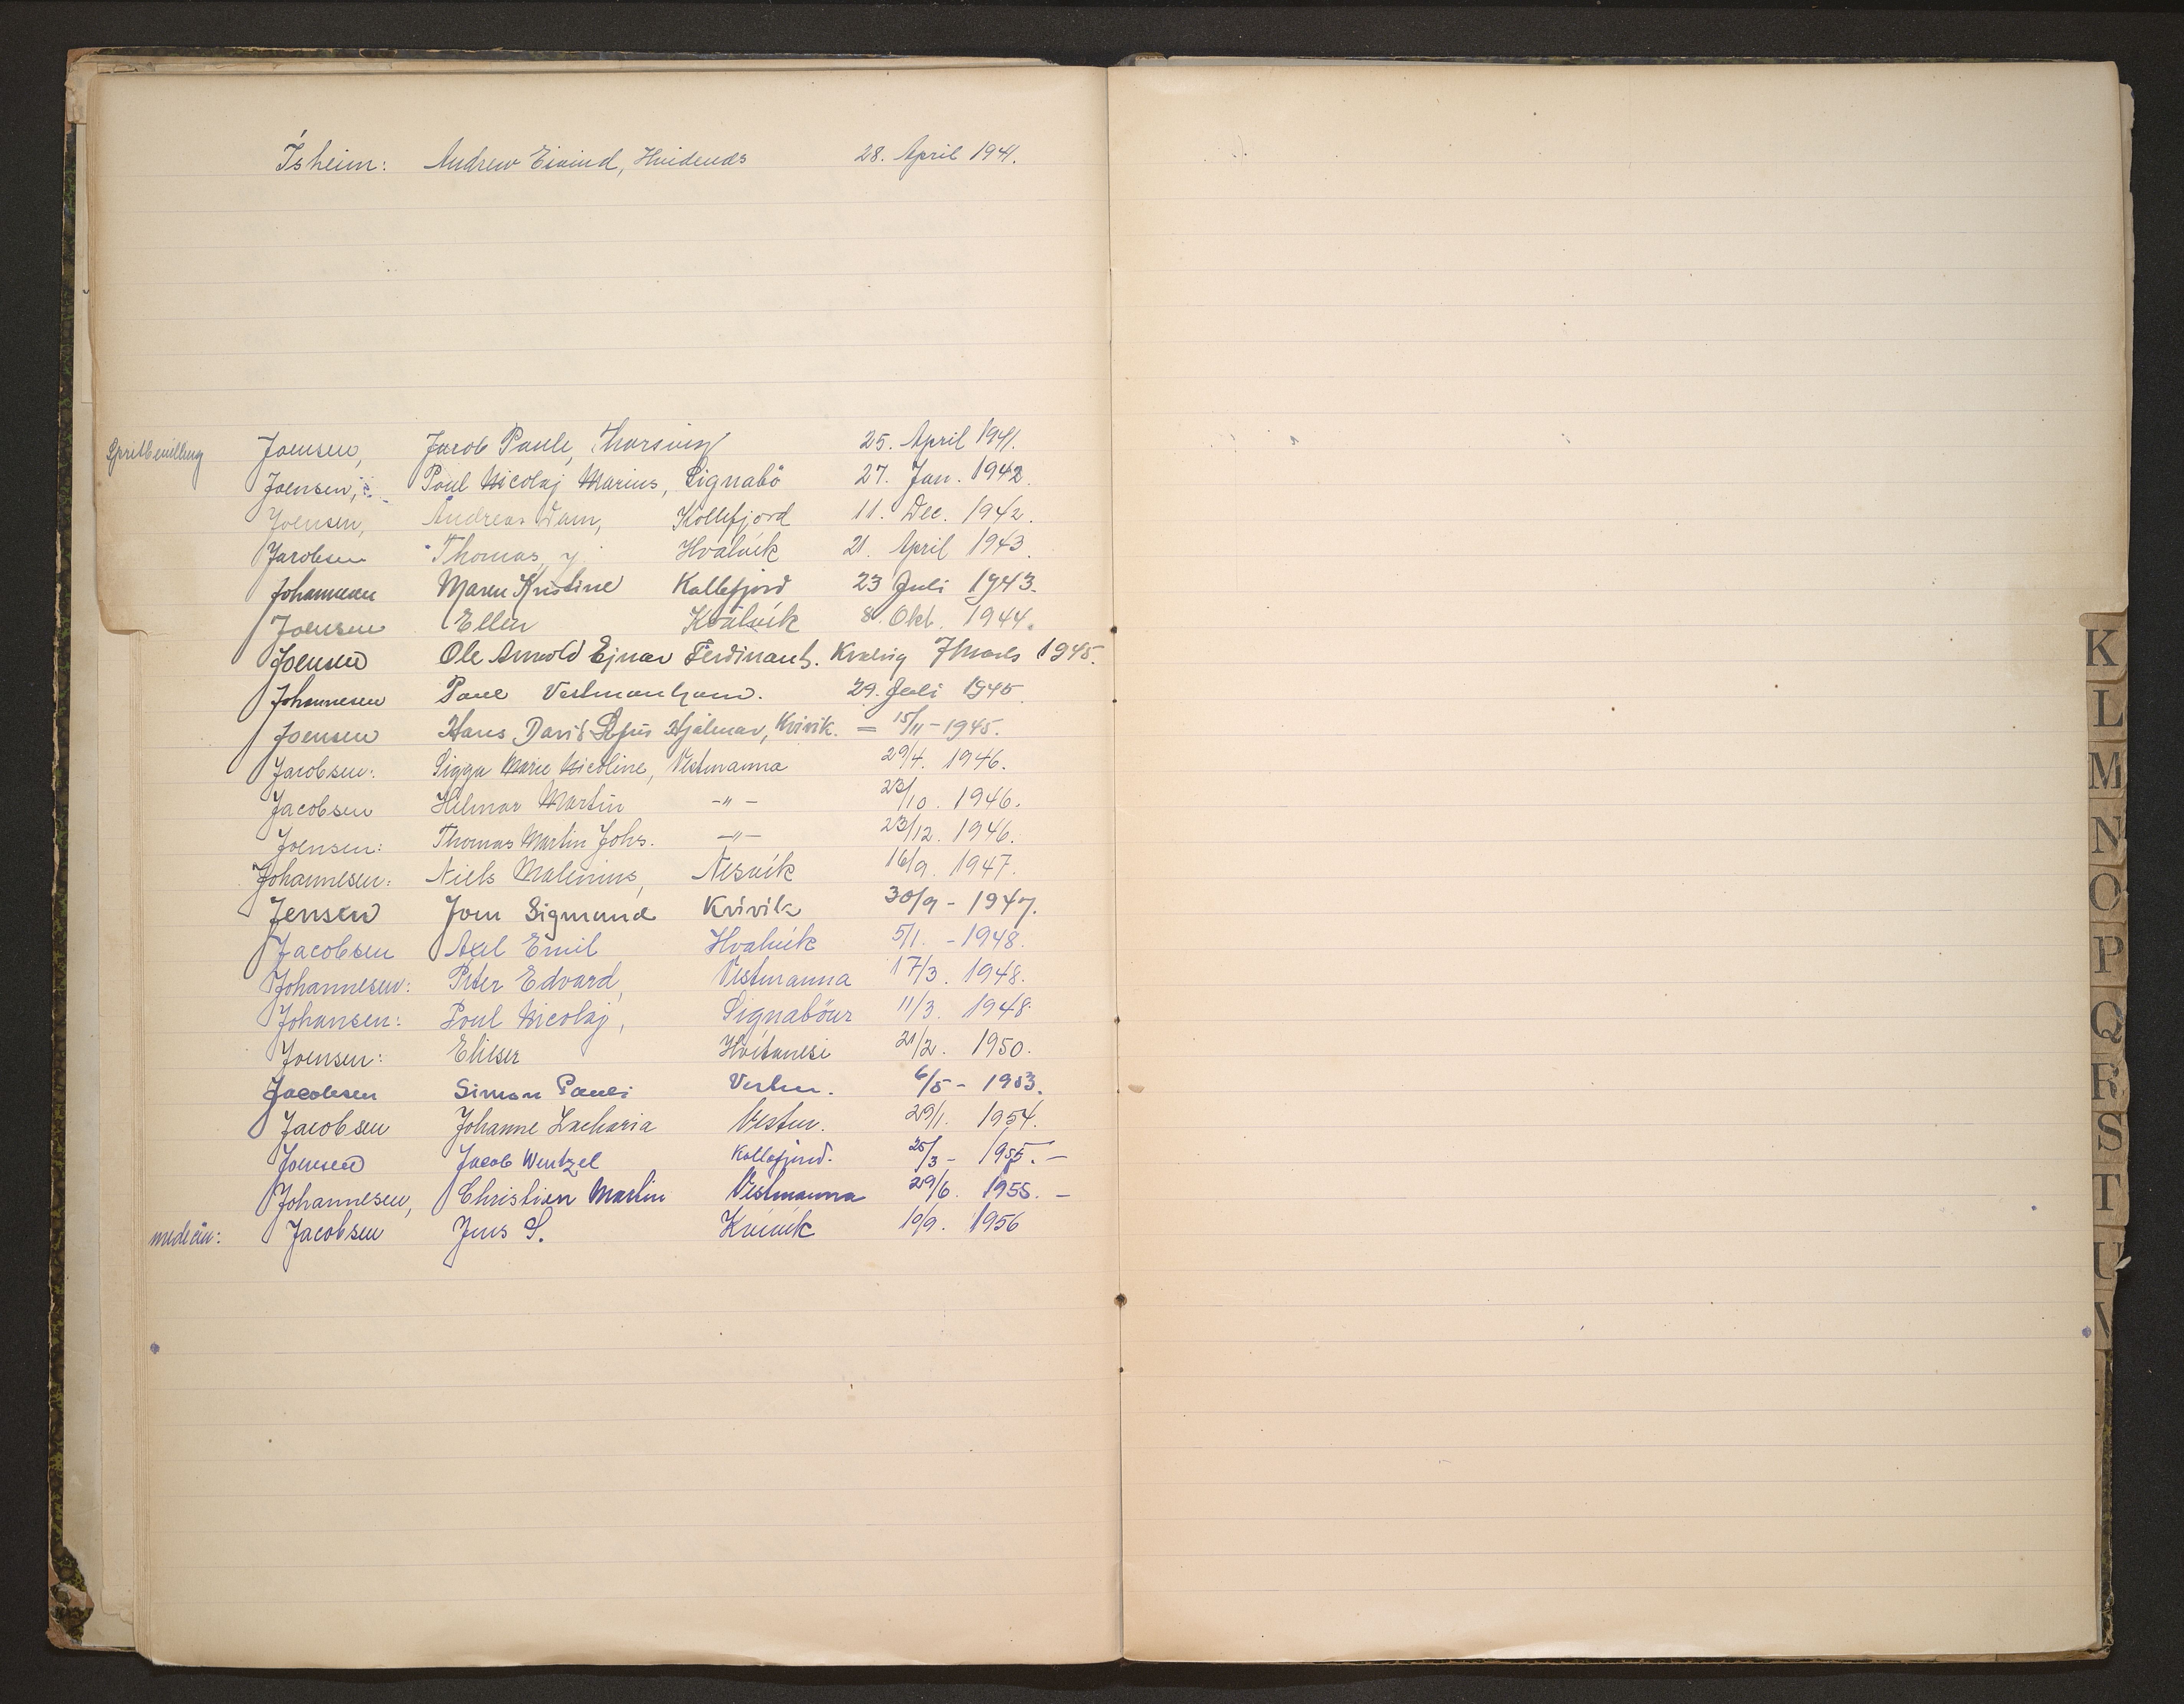 Ísheim: Andrew Eivind, Hvidenæs 28. April 1941.
Spritbevilling Joensen, Jacob Pauli, Thorsvig 25. April 1941.
Joensen, Poul Nicolaj Marius, Signabö 27. Jan. 1942.
Joensen, Andreas Dam, Kollefjord 11. Dec. 1942.
Jacobsen Thomas, Hvalvík 21. April 1943.
Johannesen Maren Kristine Kollefjord 23 Juli 1943.
Joensen Ellen Kválvík 8. Okt. 1944.
Joensen Ole Arnold Ejnar Ferdinant. Kvalvig 7 Marts 1945.
Johannesen Poul Vestmanhavn. 29. Juli 1945
Joensen Hans David Hjálmar, Kvívík. = 15/11-1945.
Jacobsen: Sigga Marie Nicoline, Vestmanna 29/4. 1946.
Jacobsen Hilmar Martin -"- 23/10. 1946.
Joensen: Thomas Martin Johs. -"- 23/12. 1946.
Johannesen: Niels Malinius, Nesvík 16/9. 1947.
Jensen Jom Sigmund Kvívík 30/9 - 1947.
Jacobsen Axel Emil Hvalvík 5/1. - 1948.
Johannesen: Peter Edvard, Vestmanna 17/3. 1948.
Johansen: Poul Nicolaj, Signabøur 11/3. 1948.
Joensen: Elieser Hvítanesi 21/2. 1950.
Jacobsen Simon Pauli Vestm. 6/5 - 1953.
Jacobsen Johanne Zacharia Vestm. 29/1. 1954.
Joensen Jacob Wentzel Kollefjord. 25/3 - 1955. -
Johannesen, Christian Martin Vestmanna 29/6. 1955. -
medicin: Jacobsen Jens S. Kvívík 10/9. 1956
K
L
M
N
O
P
Q
R
S
T
U